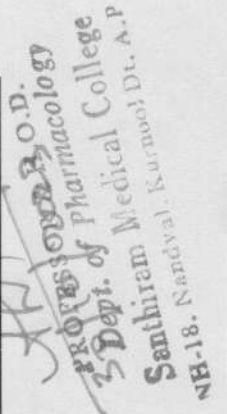 PROFESSOR & H.O.D.
Dept. of Pharmacology
Santhiram Medical College
NH-18. Nandyal. Kurnool Dt. A.P